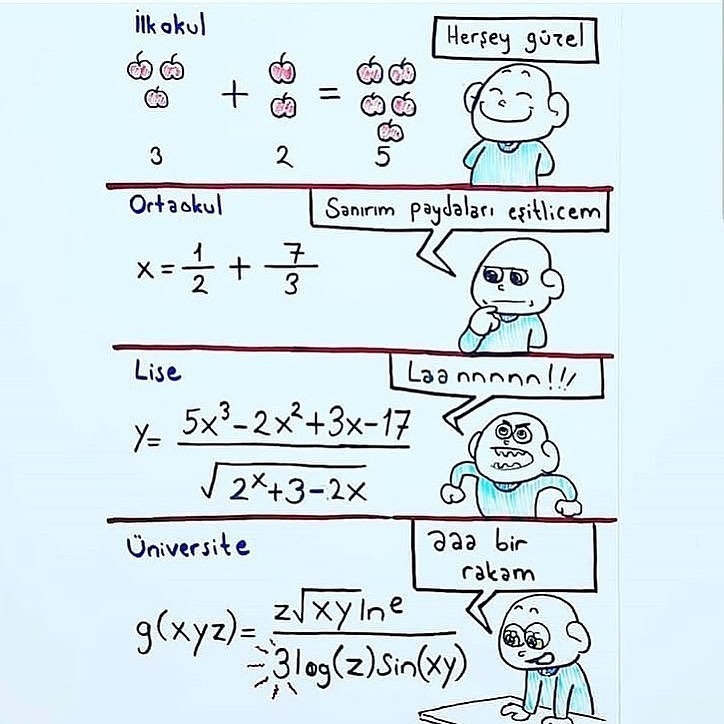 İlkokul
Herşey güzel
+ =
3 2 5
Ortaokul
Sanırım paydaları eşitlicem
x = 1/2 + 7/3
Lise
Laannnnnn!!!
y= 5x³-2x²+3x-17
√2ˣ+3-2x
Üniversite
aaa bir
rakam
g(xyz)= z√xy lnᵉ
3log(z)Sin(xy)